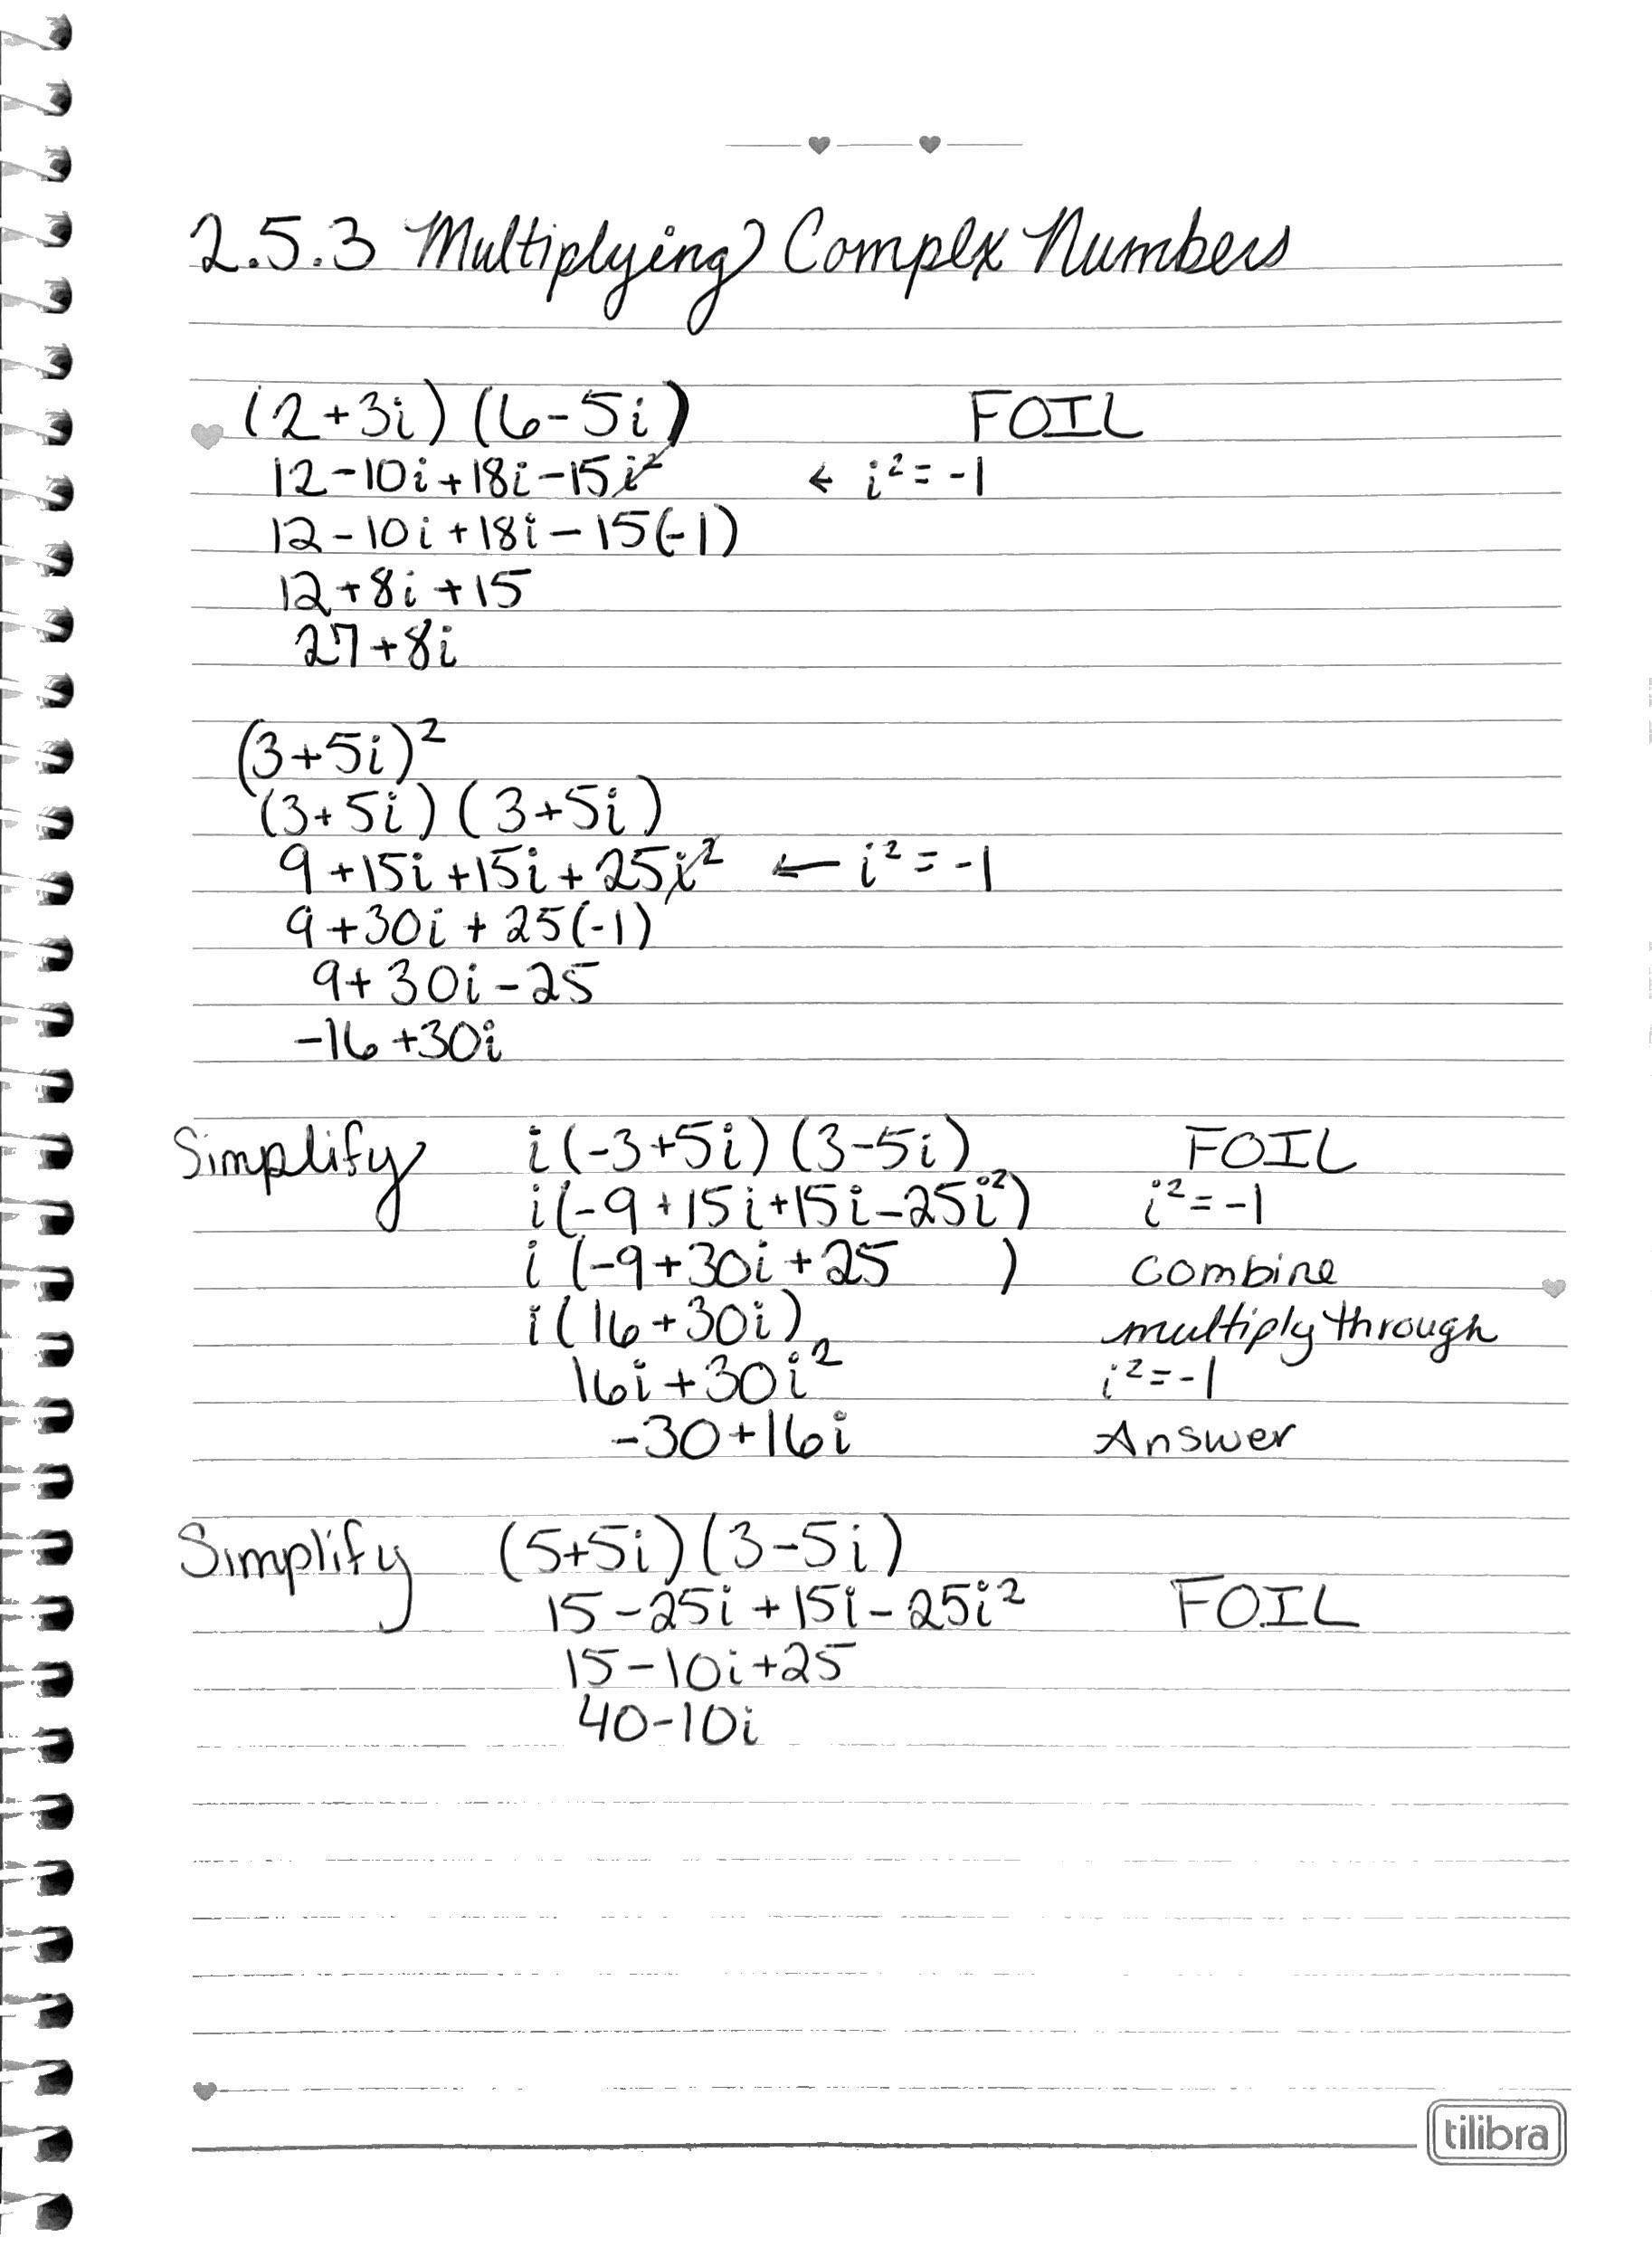 2.5.3 Multiplying Complex Numbers
(2+3i) (6-5i) FOIL
12-10i+18i-15i² ← i²=-1
12-10i+18i-15(-1)
12+8i+15
27+8i
(3+5i)²
(3+5i) (3+5i)
9+15i+15i+25i² ← i²=-1
9+30i+25(-1)
9+30i-25
-16+30i
Simplify i(-3+5i) (3-5i) FOIL
i(-9+15i+15i-25i²) i²=-1
i (-9+30i+25 ) combine
i(16+30i) multiply through
16i+30i² i²=-1
-30+16i Answer
Simplify (5+5i)(3-5i)
15-25i+15i-25i² FOIL
15-10i+25
40-10i
tilibra